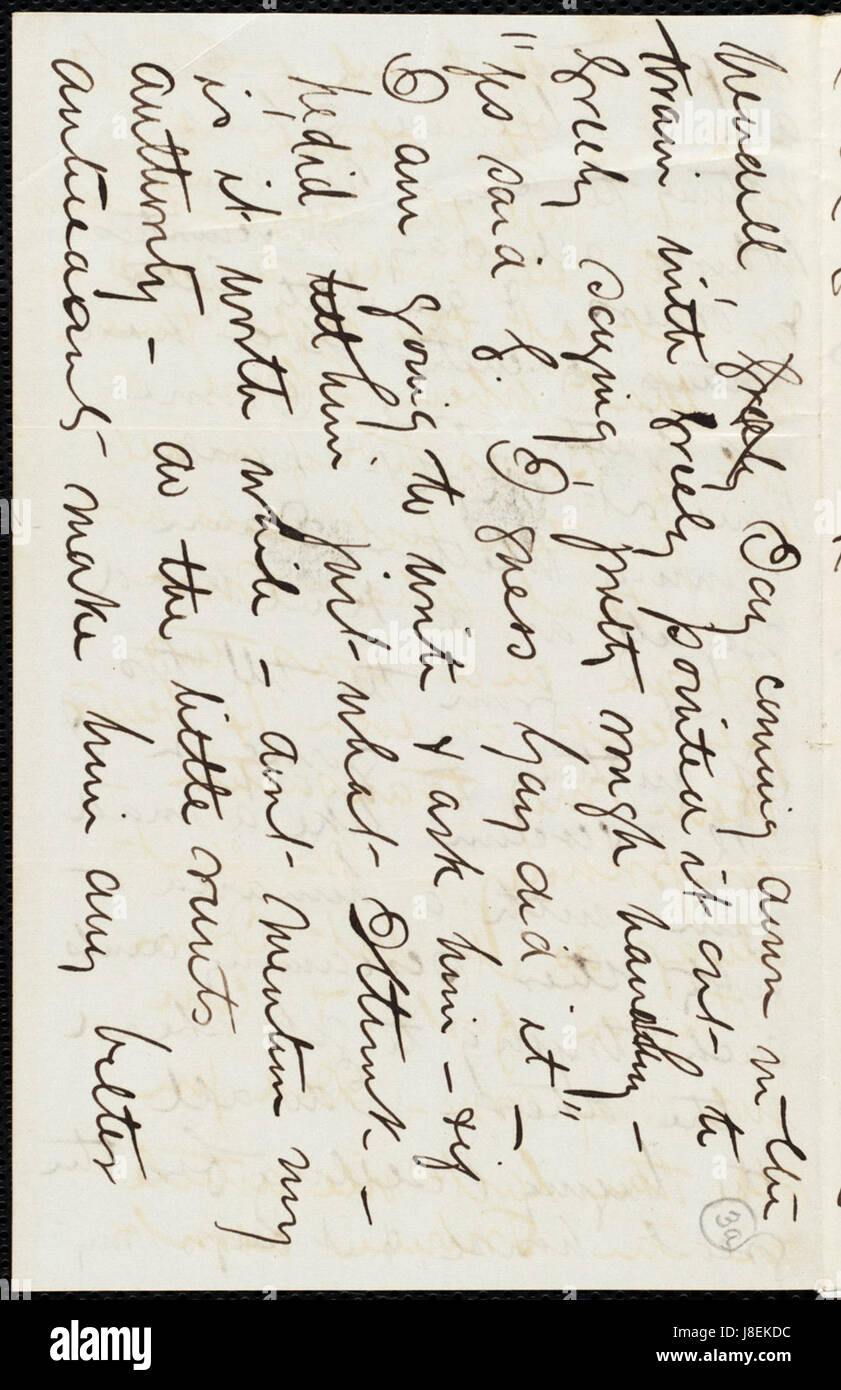 Wendell, Gay coming down in the
train with Greely pointed it out to
Greely saying, "pretty rough handling –
"yes said G. I guess Gay did it" –
I am going to write & ask him – & if
he did tell him just what I think –
is it worth while – don't mention my
authority – as the little runts
make him any better
3a
alamy stock photo
J8EKDC
www.alamy.com